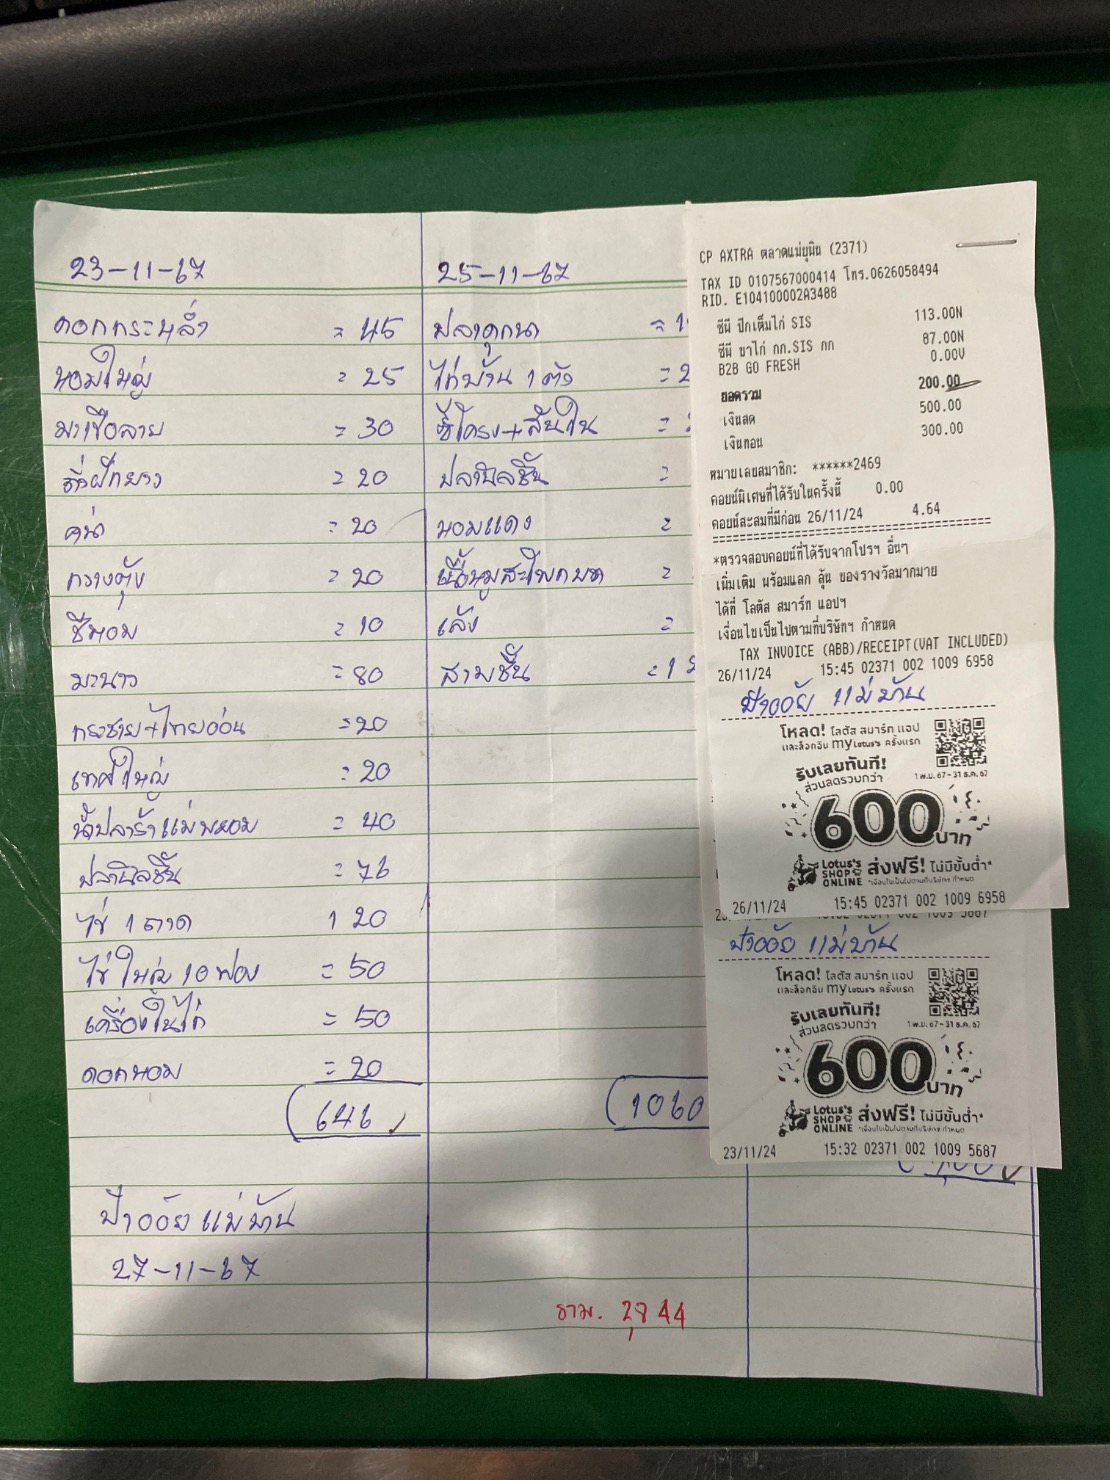 23-11-67
ดอกกระหล่ำ = 45
หอมใหญ่ = 25
มะเขือลาย = 30
ถั่วฝักยาว = 20
คน้า = 20
กวางตุ้ง = 20
ชีหอม = 10
มะนาว = 80
กระชาย+ไทยอ่อน = 20
เทศใหญ่ = 20
น้ำปลาร้าแม่พหอม = 40
ปลานิลชิ้น = 76
ไข่ 1 ถาด 120
ไข่ใหญ่ 10 ฟอง = 50
เครื่องในไก่ = 50
ดอกหอม = 20
646
ป้าอ้อย แม่บ้าน
27-11-67
25-11-67
ปลาดุกนา = 1
ไก่บ้าน 1 ตัว = 2
ซี่โครง+สันใน =
ปลานิลชิ้น =
หอมแดง =
เนื้อหมูสะโพกบด =
เล้ง =
สามชั้น = 1
1060
รวม. 2,844
CP AXTRA ตลาดแม่ยุพิน (2371)
TAX ID 0107567000414 โทร.0626058494
RID. E104100002A3488
ซีพี ปีกเต็มไก่ SIS 113.00N
ซีพี ขาไก่ กก.SIS กก 87.00N
B2B GO FRESH 0.00V
ยอดรวม 200.00
เงินสด 500.00
เงินทอน 300.00
หมายเลขสมาชิก: ******2469
คอยน์พิเศษที่ได้รับในครั้งนี้ 0.00
คอยน์สะสมที่มีก่อน 26/11/24 4.64
*ตรวจสอบคอยน์ที่ได้รับจากโปรฯ อื่นๆ
เพิ่มเติม พร้อมแลก ลุ้น ของรางวัลมากมาย
ได้ที่ โลตัส สมาร์ท แอปฯ
เงื่อนไขเป็นไปตามที่บริษัทฯ กำหนด
TAX INVOICE (ABB)/RECEIPT(VAT INCLUDED)
26/11/24 15:45 02371 002 1009 6958
ป้าอ้อย แม่บ้าน
โหลด! โลตัส สมาร์ท แอป
และล็อกอิน my Lotus's ครั้งแรก
รับเลยทันที!
ส่วนลดรวมกว่า
1 พ.ย. 67 - 31 ธ.ค. 67
600 บาท
Lotus's SHOP ONLINE ส่งฟรี! ไม่มีขั้นต่ำ*
*เงื่อนไขเป็นไปตามที่บริษัทฯ กำหนด
26/11/24 15:45 02371 002 1009 6958
ป้าอ้อย แม่บ้าน
โหลด! โลตัส สมาร์ท แอป
และล็อกอิน my Lotus's ครั้งแรก
รับเลยทันที!
ส่วนลดรวมกว่า
1 พ.ย. 67 - 31 ธ.ค. 67
600 บาท
Lotus's SHOP ONLINE ส่งฟรี! ไม่มีขั้นต่ำ*
*เงื่อนไขเป็นไปตามที่บริษัทฯ กำหนด
23/11/24 15:32 02371 002 1009 5687